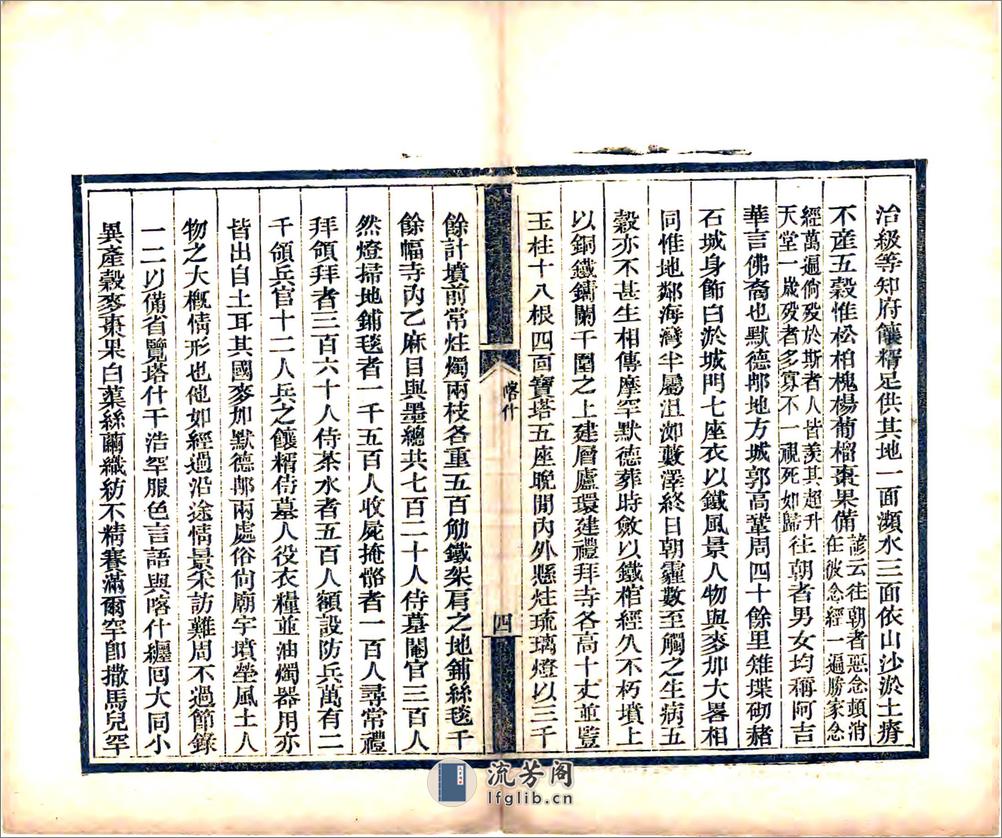 治級等知府餼糈足供其地一面瀕水三面依山沙淤土瘠
不產五穀惟松柏槐楊葡榴棗果備諺云往朝者惡念頓消在彼念經一遍勝家念
經萬遍倘歿於斯者人皆羨其超升天堂一歲歿者多寡不一視死如歸往朝者男女均稱阿吉
華言佛裔也默德那地方城郭高鞏周四十餘里雉堞砌赭
石城身飾白淤城門七座衣以鐵風景人物與麥加大畧相
同惟地鄰海灣半屬沮洳數澤終日朝霾數至觸之生病五
穀亦不甚生相傳摩罕默德葬時斂以鐵棺經久不朽墳上
以銅鐵鑄闌干圍之上建層廬環建禮拜寺各高十丈並豎
玉柱十八根四面寶塔五座晚間內外懸炷琉璃燈以三千
喀什
四
餘計墳前常炷燭兩枝各重五百觔鐵架肩之地鋪絲毯千
餘幅寺內乙麻目與墨總共七百二十人侍墓閹官三百人
然燈掃地鋪毯者一千五百人收屍掩骼者一百人尋常禮
拜領拜者三百六十人侍茶水者五百人額設防兵萬有二
千領兵官十二人兵之餼糈侍墓人役衣糧並油燭器用亦
皆出自土耳其國麥加默德那兩處俗尙廟宇墳塋風土人
物之大概情形也他如經過沿途情景采訪難周不過節錄
一二以備省覽塔什干浩罕服色言語與喀什纏回大同小
異產穀麥棗果白菜絲繭織紡不精賽滿爾罕卽撒馬兒罕
流芳阁
lfglib.cn